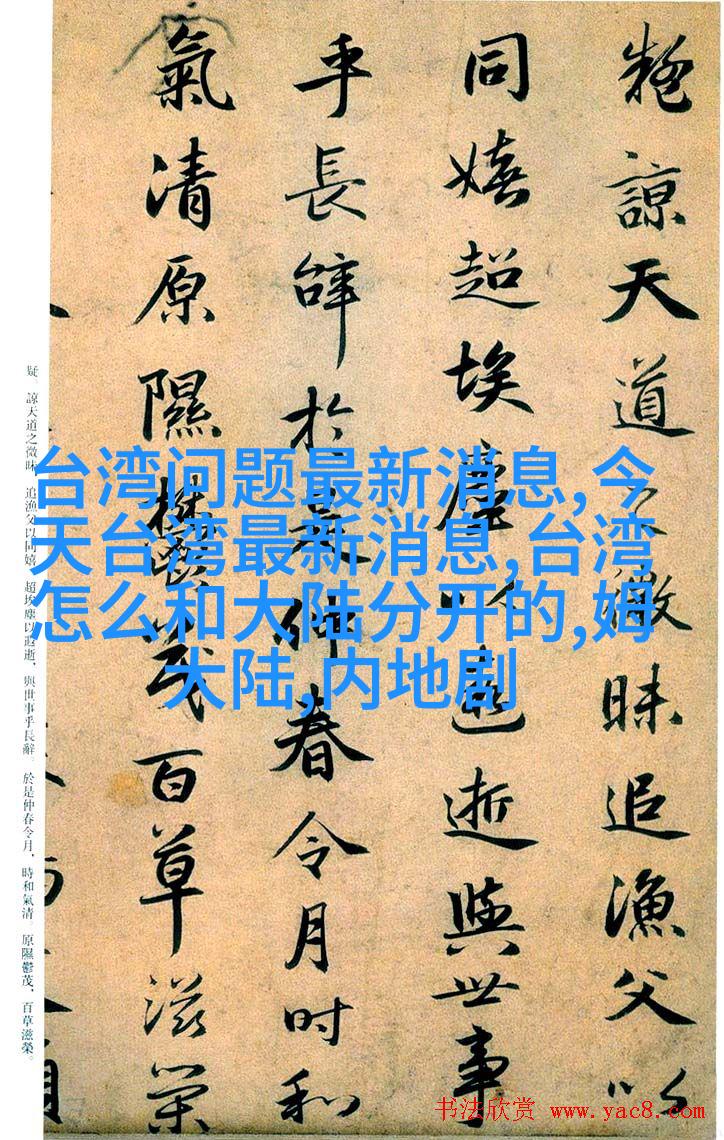 疑諒天道之微昧追漁父以
同嬉超埃塵以遐逝與世事
乎長辭於是仲春令月時和
氣清原隰鬱茂百草滋榮
疑。諒天道之微昧,追漁父以同嬉,超埃塵以遐逝,與世事乎長辭。於是仲春令月,時和氣清。原隰鬱茂,百草滋榮。
台湾问题最新消息,今
天台湾最新消息,台湾
怎么和大陆分开的,姆
大陆,内地剧
书法欣赏 www.yac8.com